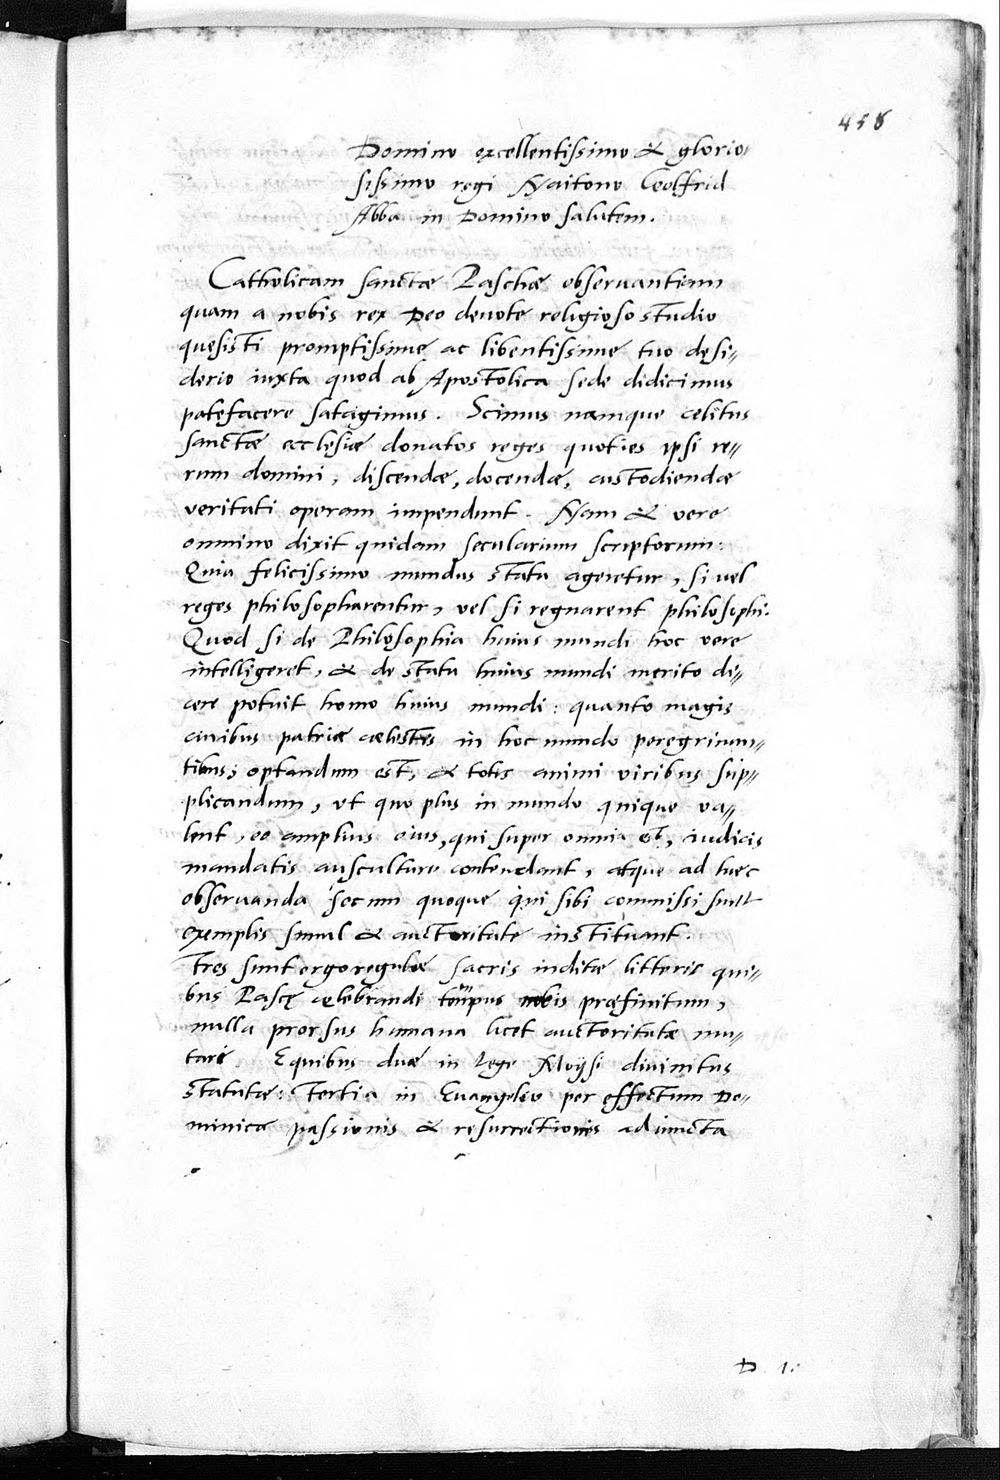 458
Domino excellentissimo & glorio-
sissimo regi Naitono Ceolfrid
Abba in Domino salutem.
Catholicam sanctæ Paschæ obseruantiam
quam a nobis rex Deo deuote religioso studio
quęsisti promptissime ac libentissime tuo desi-
derio iuxta quod ab Apostolica sede didicimus
patefacere satagimus. Scimus namque cælitus
sanctæ ecclesiæ donatos reges quoties ipsi re-
rum domini, discendæ, docendæ, custodiendæ
veritati operam impendunt. Nam & vere
omnino dixit quidam secularium scriptorum:
Quia felicissimo mundus statu ageretur, si vel
reges philosopharentur, vel si regnarent philosophi.
Quod si de Philosophia huius mundi hoc vere
intelligeret, & de statu huius mundi merito di-
cere potuit homo huius mundi: quanto magis
ciuibus patriæ cælestis in hoc mundo peregrinan-
tibus; optandum est, & totis animi viribus sup-
plicandum, vt quo plus in mundo quique va-
lent, eo amplius eius, qui super omnia est, iudicis
mandatis auscultare contendant, atque ad hæc
obseruanda secum quoque qui sibi commissi sunt
exemplis simul & auctoritate instituant.
Tres sunt ergo regulæ sacris inditæ litteris qui-
bus Pascę celebrandi tempus nobis præfinitum,
nulla prorsus humana licet auctoritate mu-
tare. E quibus duæ in lege Moysi diuinitus
statutæ: Tertia in Euangelio per effectum Do-
minicæ passionis & resurrectionis adiuncta
D. 1.